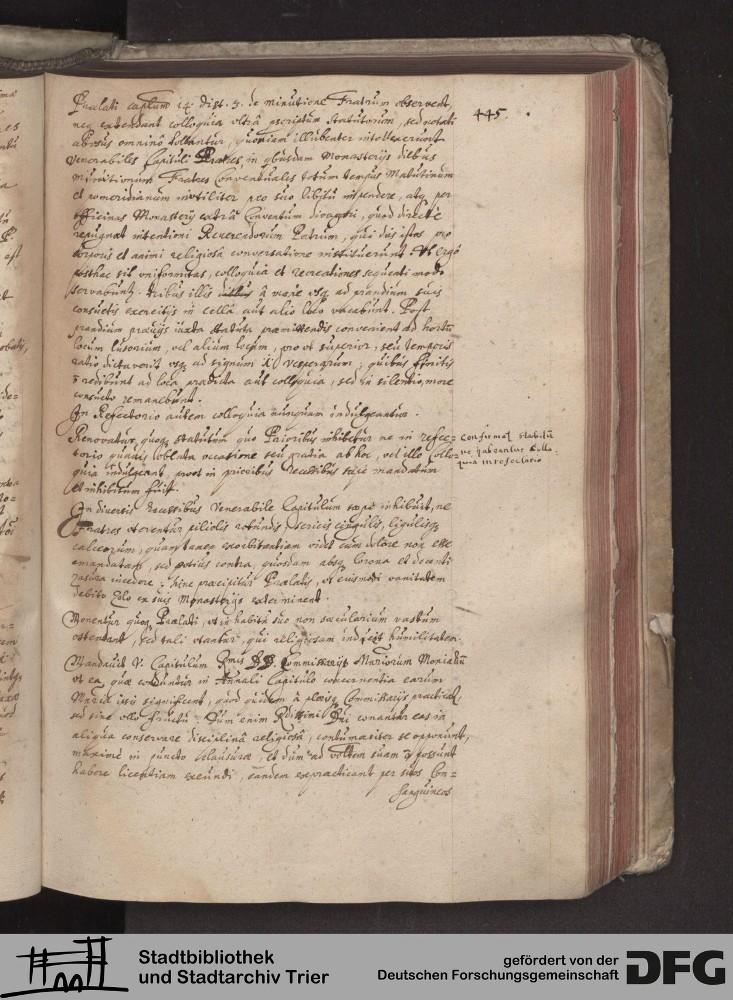 445.
Prælati captum 14. Dist. 3. de minutione Fratrum observent,
neq extendant colloquia ultrà præscriptum Statutorum, sed notati
abusus omninò tollantur, quoniam illubenter intellexerunt
Venerabiles Capituli Patres, in qbusdam Monasterijs diebus
minutionum Fratres Conventuales totum tempus Matutinum
et pomeridianum inutiliter pro suo libitu impendere, atq per
officinas Monasterij extrà Conventum divagari, quod directè
repugnat intentioni Reverendorum Patrum, qui dies istos pro
corporis et animi religiosâ conversatione instituerunt. Ut ergo
posthac sit uniformitas, colloquia et recreationes sequenti modo
servabunt. Tribus illis à mane usq ad prandium suis
consuetis exercitijs in cellâ aut alio loco vacabunt. Post
prandium gratijs iuxta statuta præmittendis convenient ad hortu
locum lusorium, vel alium locum, prout superior, seu temporis
ratio dictaverit usq ad signum Vesperarum; quibus finitis
redibunt ad loca prædicta aut colloquia, sed in silentio more
consueto remanebunt.
In Refectorio autem colloquia nunquam indulgeantur.
Renovatur quoq statutum quo Prioribus inhibetur ne in refec=
torio quavis oblata occasione seu gratia ab hoc, vel illo collo=
quia indulgeant, prout in prioribus Recessibus sæpè mandatum
et inhibitum fuit.
Confirmat statutu
ne habeantur Collo
quia in refectorio
In diversis Recessibus Venerabile Capitulum sæpe inhibuit, ne
Fratres uterentur pileolis rotundis sericis cingulis, ligulisq
calceorum, quam tamen exorbitantiam videt cum dolore non esse
emandatam, sed potius contra, quosdam absq Corona et decenti
rasura incedere; hinc præcipitur Prælatis, ut eiusmodi vanitatem
debito Zelo ex suis Monasterijs exterminent.
Monentur quoq Prælati, ut in habitu suo non sæcularium vastum
ostendant, sed tali utantur, qui religiosam indicet humilitatem.
Mandavit V. Capitulum Rmis DD. Commissarijs Mnriorum Monialiu
ut ea, quæ eduntur in Annali Capitulo concernentia earum
Mnria ipsis significent, quod quidem à plerisq Commissarijs practicat,
sed sine ullo fructu. Dum enim Rdissimi Dni conantur eas in
aliqua conservare disciplinâ religiosâ, contumaciter se opponunt,
maximè in puncto clausuræ, et dum ad votum suam possunt
habere licentiam exeundi, eandem expracticant per suos Con=
sanguineos
Stadtbibliothek
und Stadtarchiv Trier
gefördert von der
Deutschen Forschungsgemeinschaft
DFG